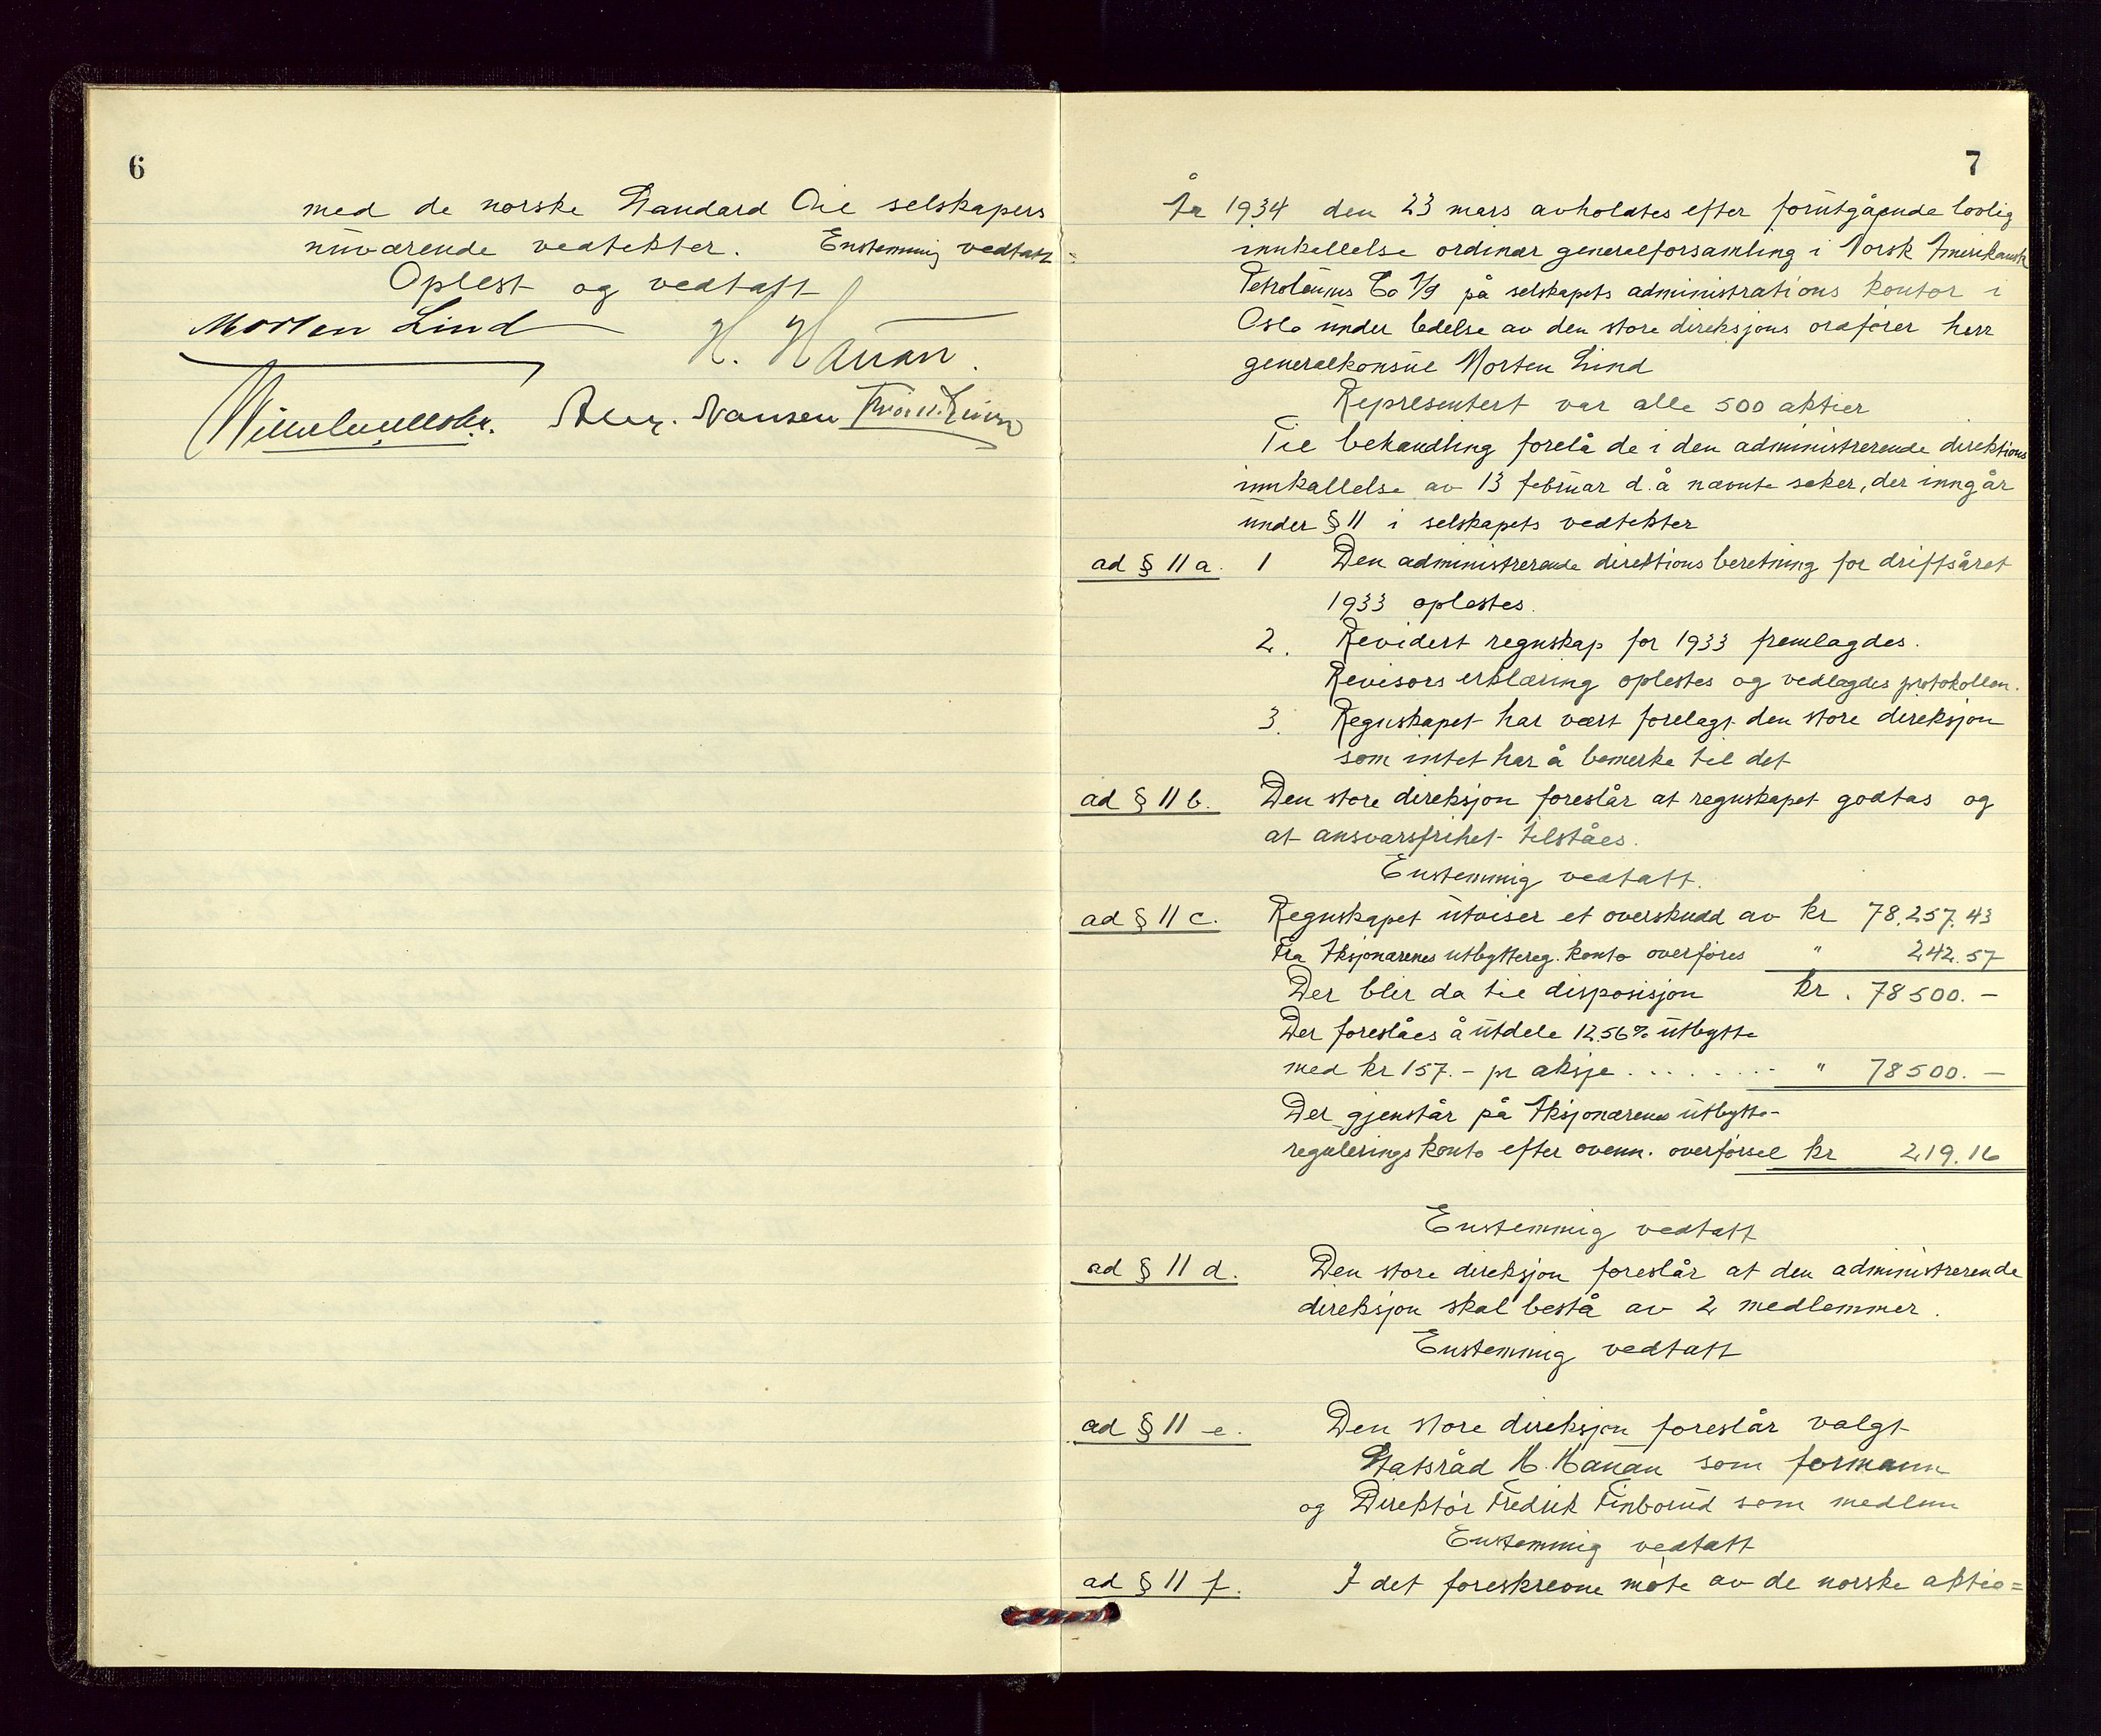 6
med de norske Standard Oil selskapers
nuværende vedtekter. Enstemmig vedtatt
Oplest og vedtatt
Morten Lind H. Hauan
Alex. Nansen
7
År 1934 den 23 mars avholdtes efter forutgående lovlig
innkallelse ordinær generalforsamling i Norsk Amerikansk
Petroleums Co A/S på selskapets administrations kontor i
Oslo under ledelse av den store direksjons ordfører herr
generalkonsul Morten Lind
Representert var alle 500 aktier
Til behandling forelå de i den administrerende direktions
innkallelse av 13 februar d.å nævnte saker, der inngår
under § 11 i selskapets vedtekter
ad § 11 a. 1 Den administrerende direktions beretning for driftsåret
1933 oplestes.
2. Revidert regnskap for 1933 fremlagdes.
Revisors erklæring oplestes og vedlagdes protokollen.
3. Regnskapet har vært forelagt den store direksjon
som intet har å bemerke til det
ad § 11 b. Den store direksjon foreslår at regnskapet godtas og
at ansvarsfrihet tilståes.
Enstemmig vedtatt.
ad § 11 c. Regnskapet utviser et overskudd av kr 78.257.43
Fra Aksjonærenes utbyttereg. konto overføres " 242.57
Der blir da til disposisjon kr. 78500.-
Der foreslåes å utdele 12.56% utbytte
med kr 157.- pr aksje . . . . . . . . " 78500.-
Der gjenstår på Aksjonærenes utbytte-
regulerings konto efter ovenn. overførsel kr 219.16
Enstemmig vedtatt
ad § 11 d. Den store direksjon foreslår at den administrerende
direksjon skal bestå av 2 medlemmer.
Enstemmig vedtatt
ad § 11 e. Den store direksjon foreslår valgt
Statsråd H. Hauan som formann
og Direktør Fredrik Finborud som medlem
Enstemmig vedtatt
ad § 11 f. I det foreskrevne møte av de norske aktio=